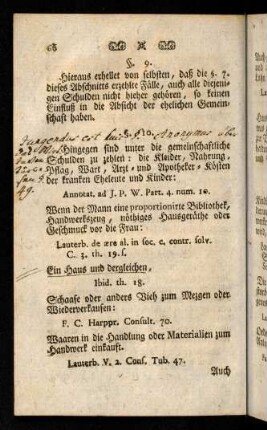 66
§. 9.
Hieraus erhellet von selbsten, daß die §. 7.
dieses Abschnitts erzehlte Fälle, auch alle diejeni-
gen Schulden nicht hieher gehören, so keinen
Einfluß in die Absicht der ehelichen Gemein-
schaft haben.
§. 10.
Hingegen sind unter die gemeinschaftliche
Schulden zu zehlen: die Kleider, Nahrung,
Pflag, Wart, Arzt- und Apotheker-Kösten
der kranken Eheleute und Kinder:
Annotat. ad J. P. W. Part. 4. num. 10.
Wenn der Mann eine proportionirte Bibliothek,
Handwerkszeug, nöthiges Hausgeräthe oder
Geschmuck vor die Frau:
Lauterb. de ære al. in soc. c. contr. solv.
C. 3. th. 19. s.
Ein Haus und dergleichen,
Ibid. th. 18.
Schaafe oder anders Vieh zum Mezgen oder
Wiederverkaufen:
F. C. Harppr. Consult. 70.
Waaren in die Handlung oder Materialien zum
Handwerk einkauft.
Lauterb. V. 2. Cons. Tub. 47.
Auch